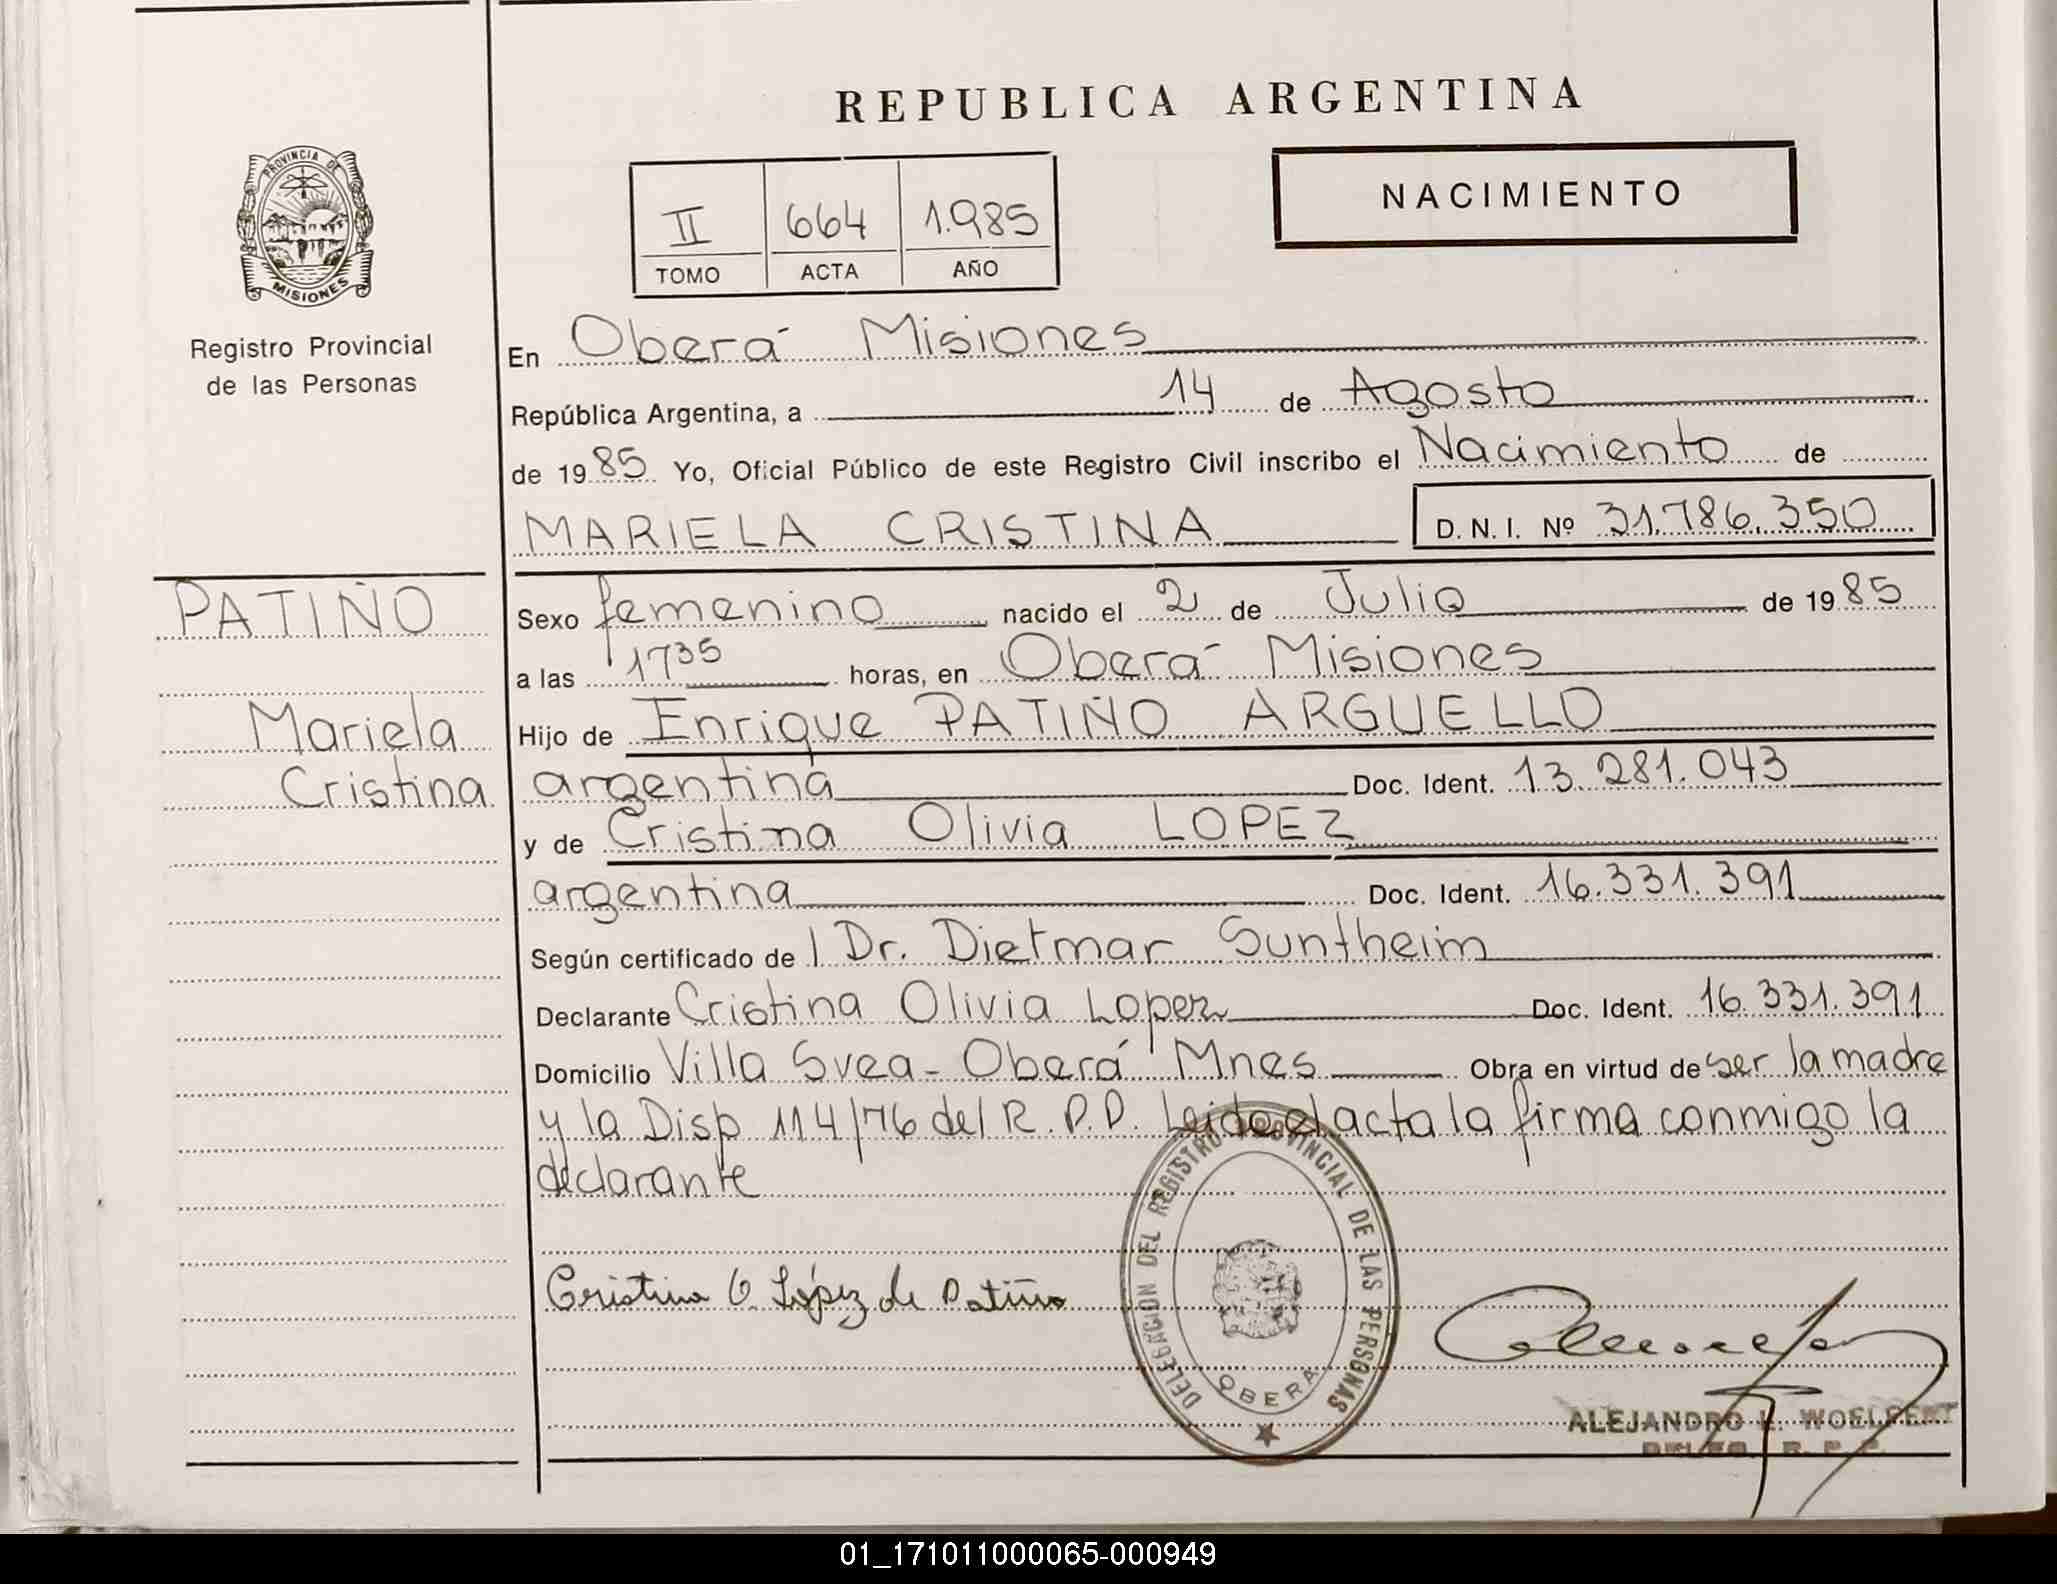 REPUBLICA ARGENTINA
PROVINCIA DE
MISIONES
Registro Provincial
de las Personas
II 664 1.985
TOMO ACTA AÑO
NACIMIENTO
En Oberá Misiones
República Argentina, a 14 de Agosto
de 1985 Yo, Oficial Público de este Registro Civil inscribo el Nacimiento de
MARIELA CRISTINA D. N. I. Nº 31.786.350
PATIÑO
Mariela
Cristina
Sexo femenino nacido el 2 de Julio de 1985
a las 1735 horas, en Oberá Misiones
Hijo de Enrique PATIÑO ARGUELLO
argentina Doc. Ident. 13.281.043
y de Cristina Olivia LOPEZ
argentina Doc. Ident. 16.331.391
Según certificado de l Dr. Dietmar Suntheim
Declarante Cristina Olivia Lopez Doc. Ident. 16.331.391
Domicilio Villa Svea - Oberá Mnes Obra en virtud de ser la madre
y la Disp 114/76 del R.P.P. Leido el acta la firma conmigo la
declarante
Cristina O. López de Patiño
DELEGACION DEL REGISTRO PROVINCIAL DE LAS PERSONAS
OBERÁ
ALEJANDRO L. WOELFERT
DELEG. R. P. P.
01_171011000065-000949